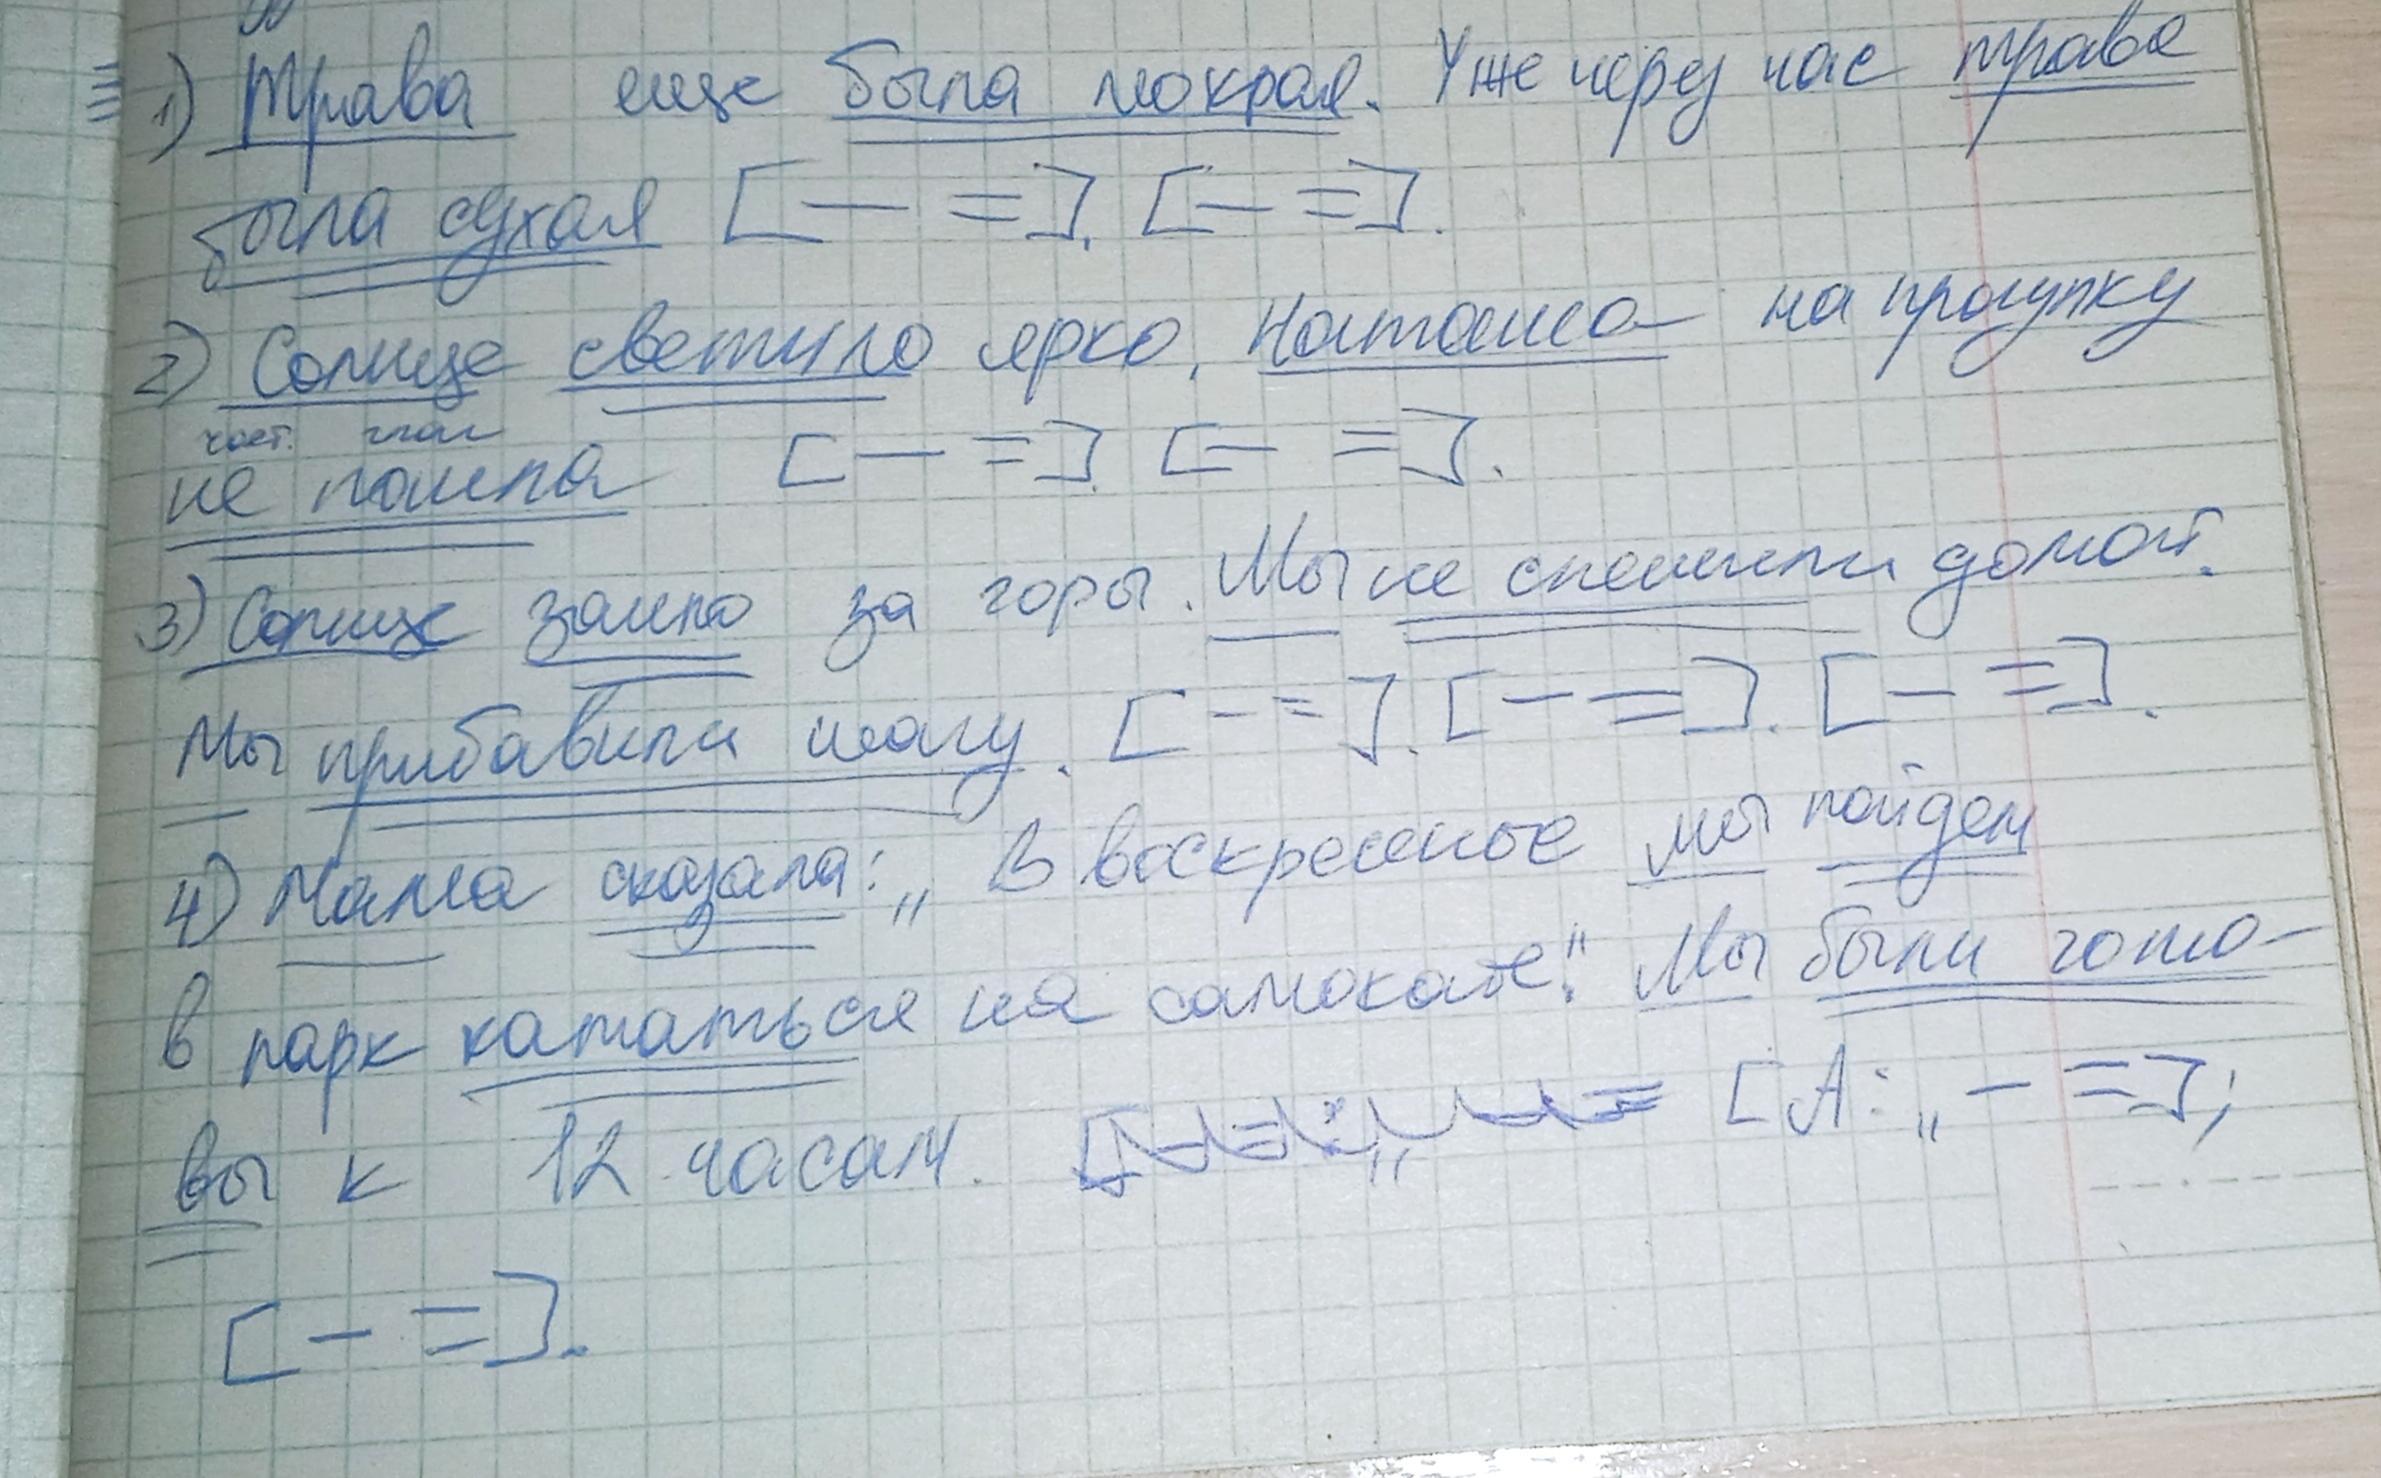 1) Трава еще была мокрая. Уже через час трава
была сухая [— =]. [— =].
2) Солнце светило ярко. Наташа на прогулку
част. глаг
не пошла [— =]. [— =].
3) Солнце зашло за горы. Мы не спешили домой.
Мы прибавили шагу. [- =]. [— =]. [— =].
4) Мама сказала: „В воскресенье мы пойдем
в парк кататься на самокате". Мы были гото-
вы к 12 часам. [А: „ — =];
[— =].